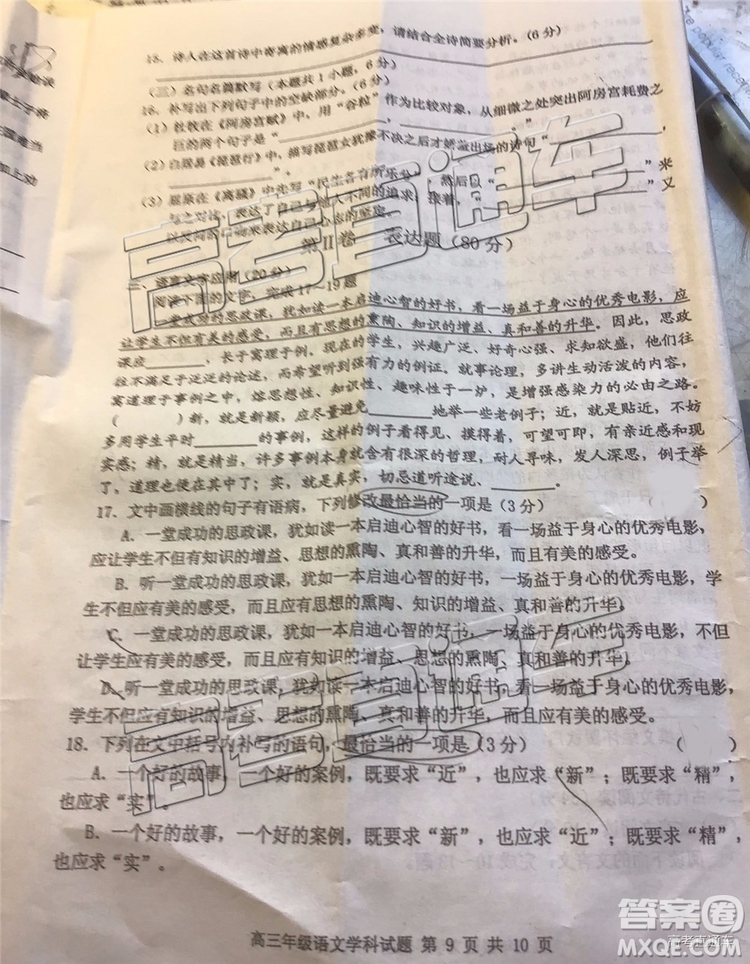 15. 诗人在这首诗中寄寓的情感复杂多变，请结合全诗简要分析。(6分)
(三) 名句名篇默写（本题共1小题，6分）
16. 补写出下列句子中的空缺部分。(6分)
(1) 杜牧在《阿房宫赋》中，用“谷粒”作为比较对象，从细微之处突出阿房宫耗费之
巨的两个句子是“          ，          。”
(2) 白居易《琵琶行》中，描写琵琶女犹豫不决之后才
出场的诗句“
(3) 屈原在《离骚》中先写“民生各有所乐兮”，然后以“          ”来
与之对比，表达了自己与他人不同的追求；
“          ”又
以反问的
来表达了自己心志的坚定。
第Ⅱ卷 表达题（80分）
二、语言文字应用（20分）
阅读下面的文字，完成17~19题
一堂成功的思政课，犹如读一本启迪心智的好书，看一场益于身心的优秀电影，应
让学生不但有美的感受，而且有思想的熏陶、知识的增益、真和善的升华。因此，思政
课应______，长于寓理于例。现在的学生，兴趣广泛、好奇心强、求知欲盛，他们往
往不满足于泛泛的论述，而希望听到强有力的例证。就事论理，多讲生动活泼的内容，
寓道理于事例之中，熔思想性、知识性、趣味性于一炉，是增强感染力的必由之路。
（    ）新，就是新颖，应尽量避免______地举一些老例子；近，就是贴近，不妨
多用学生平时______的事例，这样的例子看得见、摸得着，可望可即，有亲近感和现
实感；精，就是精当，许多事例本身就含有很深的哲理，耐人寻味，发人深思，例子举
了，道理也便在其中了；实，就是真实，切忌道听途说、______。
17. 文中画横线的句子有语病，下列修改最恰当的一项是（3分）（    ）
A. 一堂成功的思政课，犹如读一本启迪心智的好书，看一场益于身心的优秀电影，
应让学生不但有知识的增益、思想的熏陶、真和善的升华，而且应有美的感受。
B. 听一堂成功的思政课，犹如读一本启迪心智的好书，看一场益于身心的优秀电影，学
生不但应有美的感受，而且应有思想的熏陶、知识的增益、真和善的升华。
C. 一堂成功的思政课，犹如一本启迪心智的好书，一场益于身心的优秀电影，不但
让学生应有美的感受，而且应有知识的增益、思想的熏陶、真和善的升华。
D. 听一堂成功的思政课，犹如读一本启迪心智的好书，看一场益于身心的优秀电影，
学生不但应有知识的增益、思想的熏陶、真和善的升华，而且应有美的感受。
18. 下列在文中括号内补写的语句，最恰当的一项是（3分）（    ）
A. 一个好的故事，一个好的案例，既要求“近”，也应求“新”；既要求“精”，
也应求“实”。
B. 一个好的故事，一个好的案例，既要求“新”，也应求“近”；既要求“精”，
也应求“实”。
高三年级语文学科试题 第 9 页 共 10 页
高考直通车
高考直通车
答案圈
MXQE.COM
高考直通车